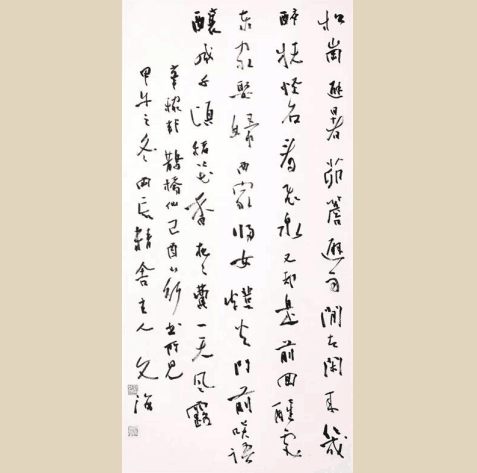 松岗避暑茆簷避雨闲去闲来几
度醉扶怪石看飞泉又却是前回醒处
东家娶妇西家归女灯火门前笑语
酿成千顷稻花香夜夜费一天风露
辛稼轩鹊桥仙己酉山行书所见
甲午之冬雨辰精舍主人文海